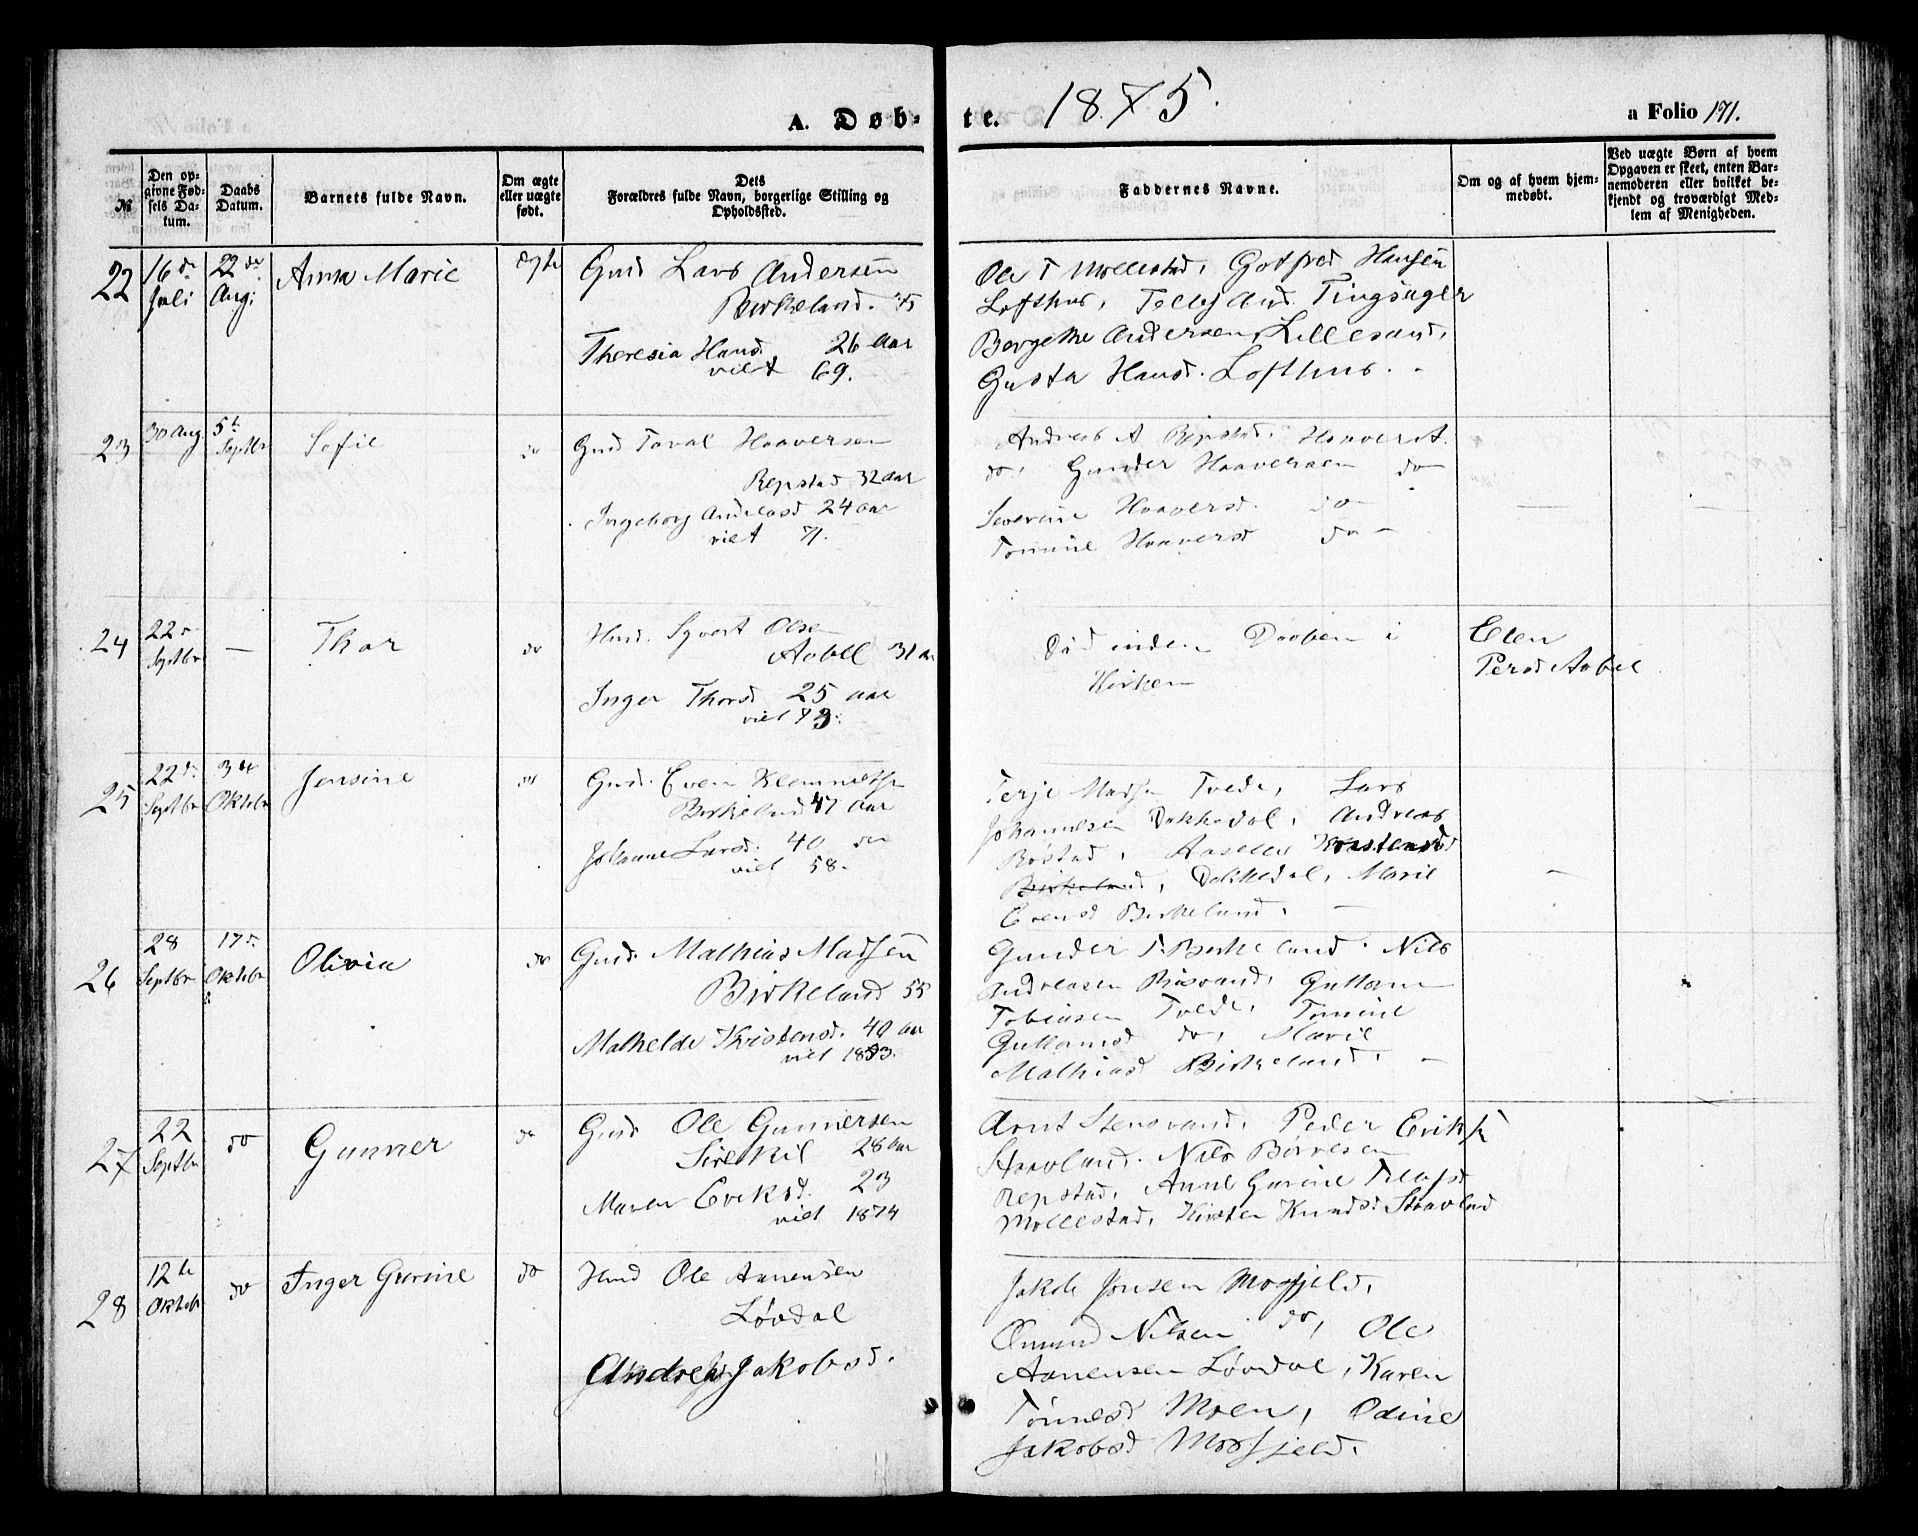 A. Døb- te. 1875. a Folio 171.
№
Den op-
givne Fød-
sels Da-
tum.
Daabs
Datum.
Barnets fulde Navn.
Om ægte
eller uægte
født.
Dets
Forældres fulde Navn, borgerlige Stilling og
Opholdssted.
Faddernes Navne.
Om og af hvem hjem-
medøbt.
Ved uægte Børn af hvem
Opgaven er skeet, enten Bar-
nemoderen eller hvilket be-
kjendt og troværdigt Med-
lem af Menigheden.
22
16 d.
Juli
22 de
Aug.
Anna Marie
ægte
Gmd Lars Andersen
Birkeland. 45
Theresia Hansd. 26 aar
viet 69.
Ole T Mollestad, Gotfred Hansen
Lofthus, Tellef And. Tingsager
Borgethe Andersen, Lillesand,
Gusta Hansd. Lofthus.
23
30 Aug.
5te
Septbr
Sofie
do
Gmd Torval Haaversen
Repstad 32 aar
Ingeborg Andreasd 24 aar
viet 71.
Andreas A Repstad, Haaver A.
do, Gunder Haaversen do
Severine Haaversd. do
Tomine Haaversd do
24
22 d
Septbr
—
Thor
do
Hmd. Syvert Olsen
Aabel 31 a
Inger Thorsd 25 aar
viet 73.
Død inden Daaben i
Kirken
Elen
Persd Aabel
25
22 d.
Septbr
3 d
Oktober
Jensine
do
Gmd. Even Klemmetsen
Birkeland 47 aar
Johanne Larsd. 40 do
viet 58.
Terje Madsen Tvede, Lars
Johannesen Dokkedal, Andreas
Røstad, Aaselev Kristensd
Birkeland, Dokkedal, Marie
Evensd Birkeland.
26
28
Septbr
17 d.
Oktober
Olivia
do
Gmd. Mathias Madsen
Birkeland 55
Mathelde Kristensd. 40 aar
viet 1853.
Gunder T. Birkeland. Nils
Andreasen Risvand, Guttorm
Tobiasen Tvede, Tomine
Guttormsd do, Marie
Mathiasd Birkeland.
27
22
Septbr
do
Gunner
do
Gmd Ole Gunnersen
Sirekil 28 aar
Maren Eriksd. 23
viet 1874
Arnt Stensvand, Peder Eriks.
Stravland. Nils Børresen
Repstad, Anne Gurine Tellefsd
Mollestad, Kirsten Knudsd Stravland
28
12te
Oktobr
do
Inger Gurine
do
Hmd Ole Aanensen
Løvdal
Andrea Jakobsd.
Jakob Jonsen Mosfjeld,
Omund Nilsen do, Ole
Aanensen Løvdal, Karen
Tønnesd Moen, Odine
Jakobsd Mosfjeld.